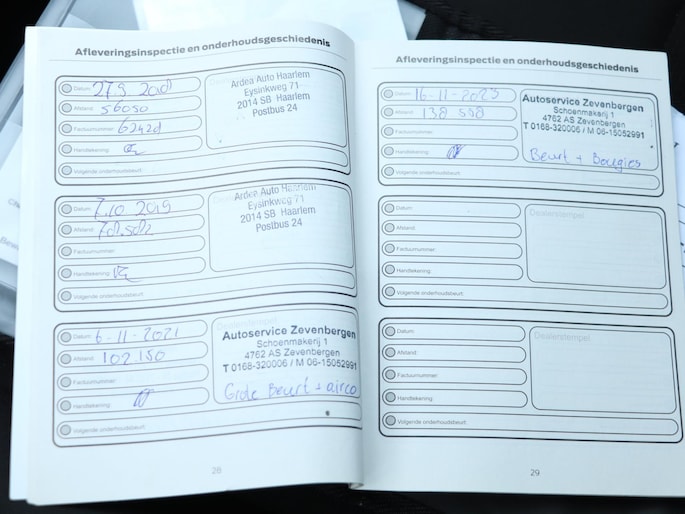 Afleveringsinspectie en onderhoudsgeschiedenis
Datum:
Afstand: 56050
Factuurnummer:
Handtekening:
Volgende onderhoudsbeurt:
Ardea Auto Haarlem
Eysinkweg 71
2014 SB Haarlem
Postbus 24
Datum: 7.10 2019
Afstand:
Factuurnummer:
Handtekening:
Volgende onderhoudsbeurt:
Ardea Auto Haarlem
Eysinkweg 71
2014 SB Haarlem
Postbus 24
Datum: 6-11-2021
Afstand: 102 150
Factuurnummer:
Handtekening:
Volgende onderhoudsbeurt:
Autoservice Zevenbergen
Schoenmakerij 1
4762 AS Zevenbergen
T 0168-320006 / M 06-15052991
Grote Beurt + airco
28
Afleveringsinspectie en onderhoudsgeschiedenis
Datum: 16-11-2023
Afstand: 138 598
Factuurnummer:
Handtekening:
Volgende onderhoudsbeurt:
Autoservice Zevenbergen
Schoenmakerij 1
4762 AS Zevenbergen
T 0168-320006 / M 06-15052991
Beurt + Bougies
Datum:
Afstand:
Factuurnummer:
Handtekening:
Volgende onderhoudsbeurt:
Dealerstempel
Datum:
Afstand:
Factuurnummer:
Handtekening:
Volgende onderhoudsbeurt:
Dealerstempel
29